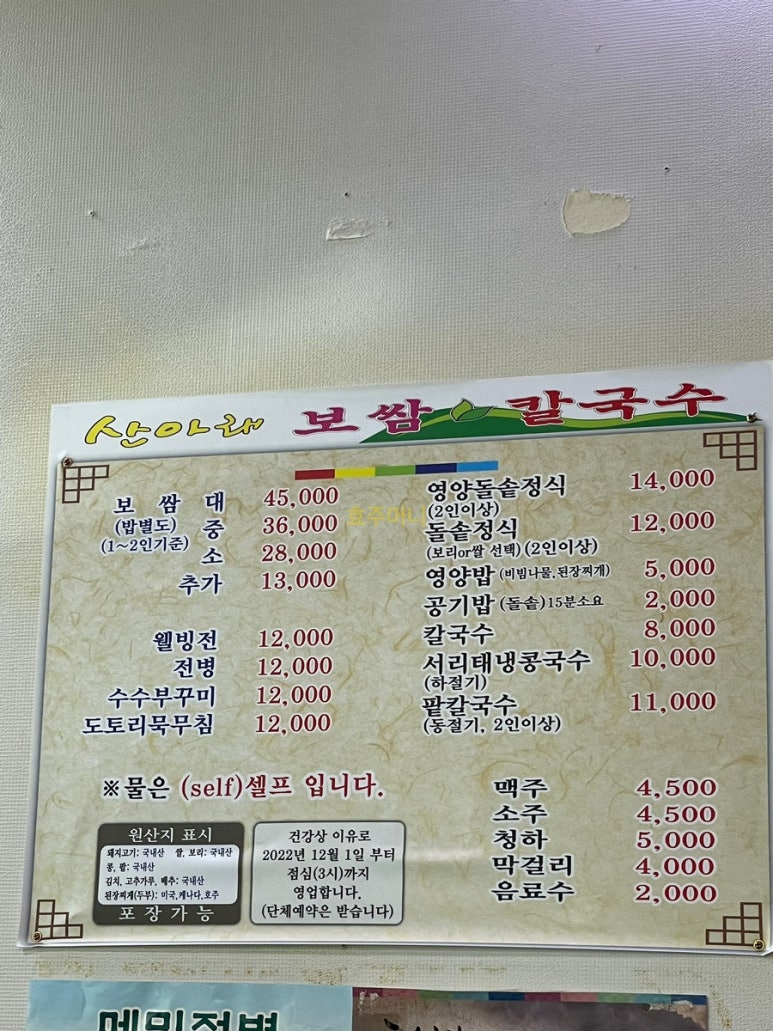 산아래 보쌈 칼국수
보쌈 대 45,000
(밥별도) 중 36,000
(1~2인기준) 소 28,000
추가 13,000
웰빙전 12,000
전병 12,000
수수부꾸미 12,000
도토리묵무침 12,000
영양돌솥정식 14,000
(2인이상)
돌솥정식 12,000
(보리or쌀 선택) (2인이상)
영양밥 (비빔나물,된장찌개) 5,000
공기밥 (돌솥)15분소요 2,000
칼국수 8,000
서리태냉콩국수 10,000
(하절기)
팥칼국수 11,000
(동절기, 2인이상)
※물은 (self)셀프 입니다.
맥주 4,500
소주 4,500
청하 5,000
막걸리 4,000
음료수 2,000
원산지 표시
돼지고기: 국내산 쌀, 보리: 국내산
콩, 팥: 국내산
김치, 고추가루, 배추: 국내산
된장찌개(두부): 미국,캐나다,호주
포장가능
건강상 이유로
2022년 12월 1일 부터
점심(3시)까지
영업합니다.
(단체예약은 받습니다)
호주마니
메밀전병